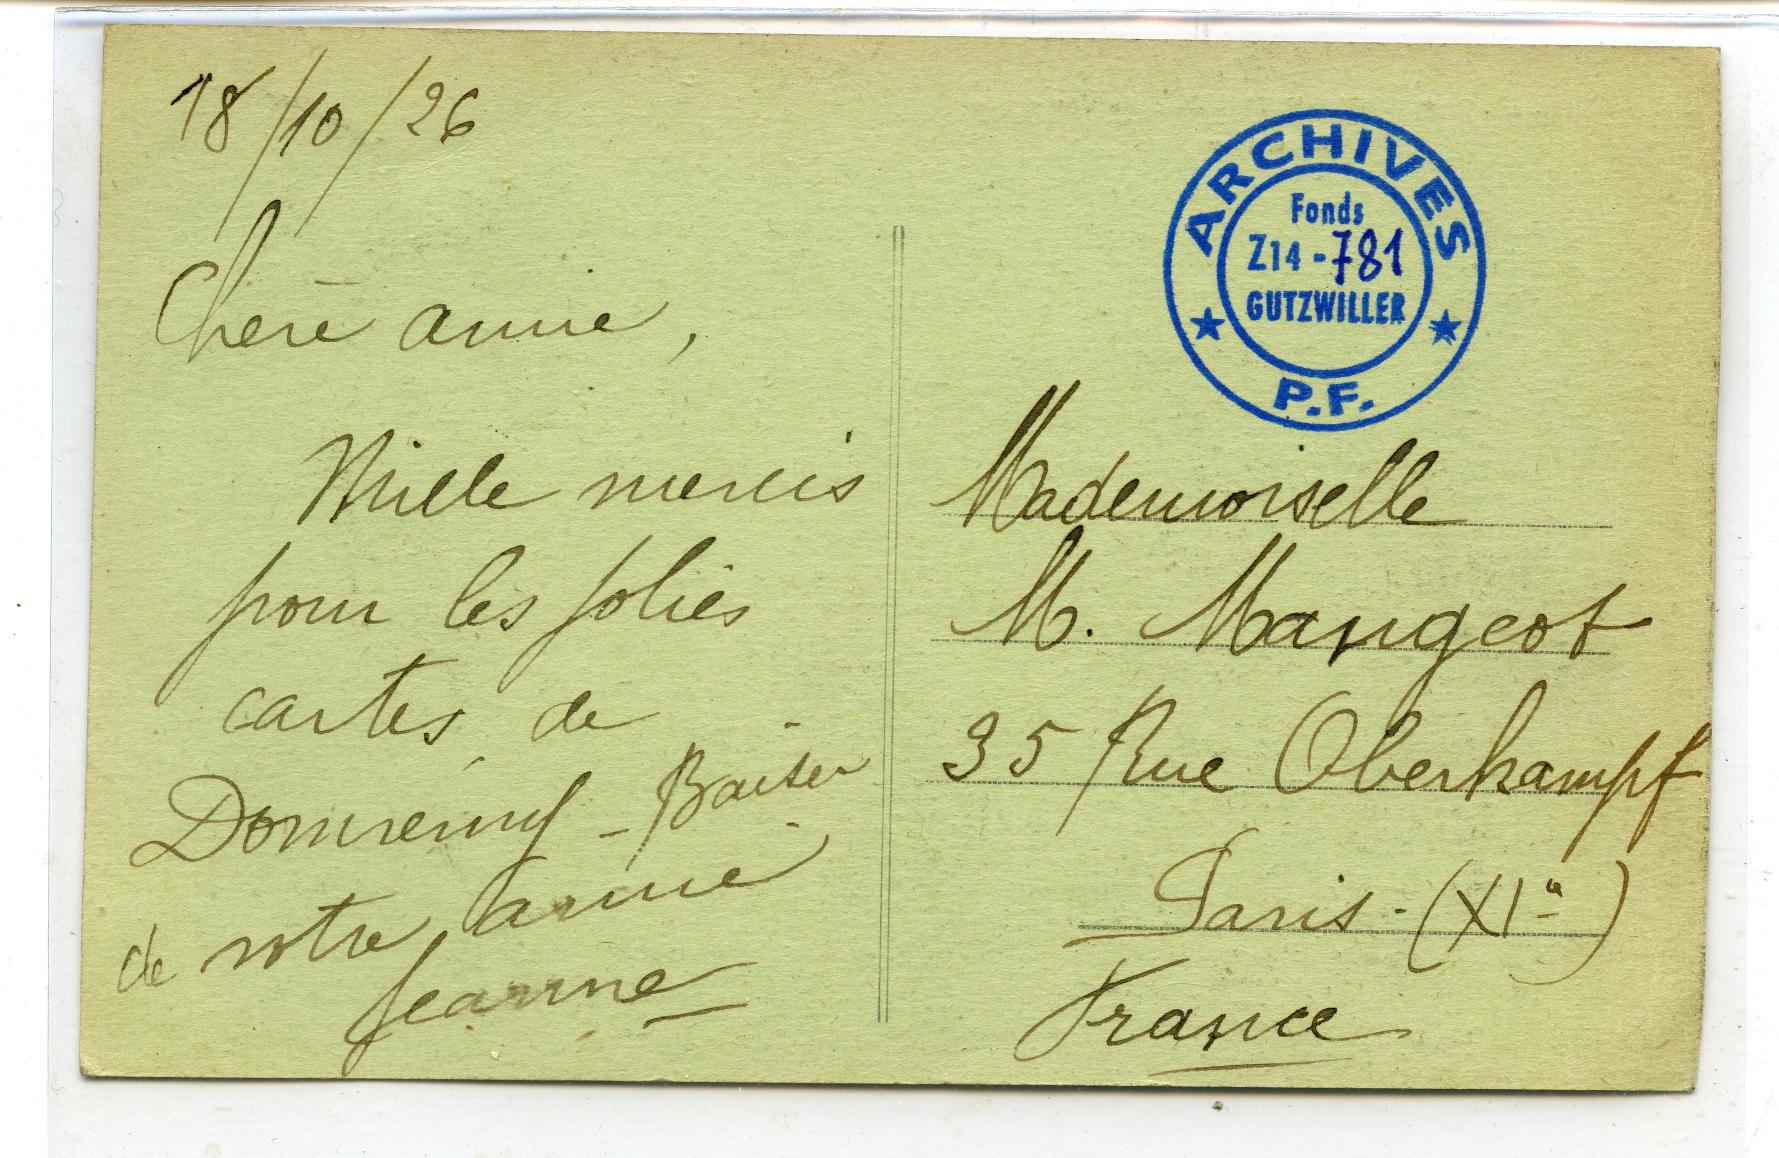 18/10/26
Chère amie,
Mille mercis
pour les jolies
cartes de
Domremy - Baiser
de votre amie
Jeanne
ARCHIVES
Fonds
Z14-781
GUTZWILLER
P.F.
Mademoiselle
M. Mangeot
35 Rue Oberkampf
Paris - (XIe)
France